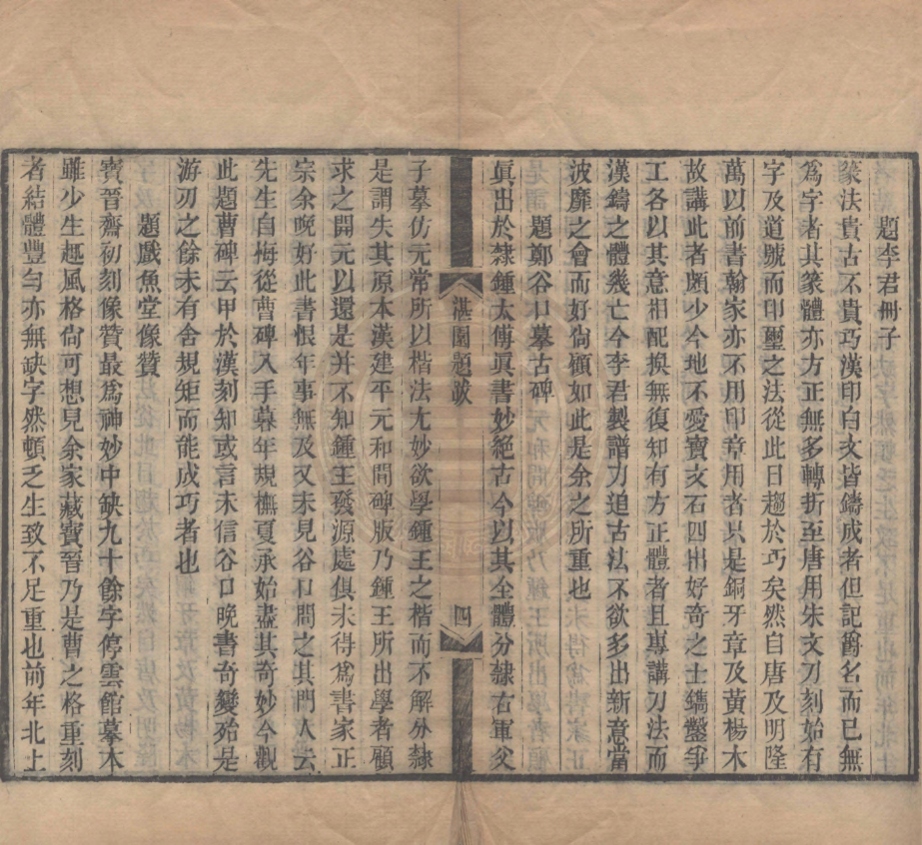 題李君冊子
篆法貴古不貴巧漢印白文皆鑄成者但記爵名而已無
爲字者其篆體亦方正無多轉折至唐用朱文刀刻始有
字及道號而印璽之法從此日趨於巧矣然自唐及明隆
萬以前書翰家亦不用印章用者只是銅牙章及黃楊木
故講此者頗少今地不愛寶文石四出好奇之士鐫鑿爭
工各以其意相配換無復知有方正體者且專講刀法而
漢鑄之體幾亡今李君製譜力追古法不欲多出新意當
波靡之會而好尙顧如此是余之所重也
題鄭谷口摹古碑
眞出於隸鍾太傅眞書妙絕古今以其全體分隸右軍父
湛園題跋
四
子摹仿元常所以楷法尤妙欲學鍾王之楷而不解分隸
是謂失其原本漢建平元和間碑版乃鍾王所出學者顧
求之開元以還是并不知鍾王發源處俱未得爲書家正
宗余晚好此書恨年事無及又未見谷口問之其門人云
先生自悔從曹碑入手暮年規橅夏承始盡其奇妙今觀
此題曹碑云甲於漢刻知或言未信谷口晚書奇變殆是
游刃之餘未有舍規矩而能成巧者也
題戲魚堂像贊
寶晉齋初刻像贊最爲神妙中缺九十餘字停雲館摹本
雖少生趣風格尙可想見余家藏寶晉乃是曹之格重刻
者結體豐勻亦無缺字然頓乏生致不足重也前年北上